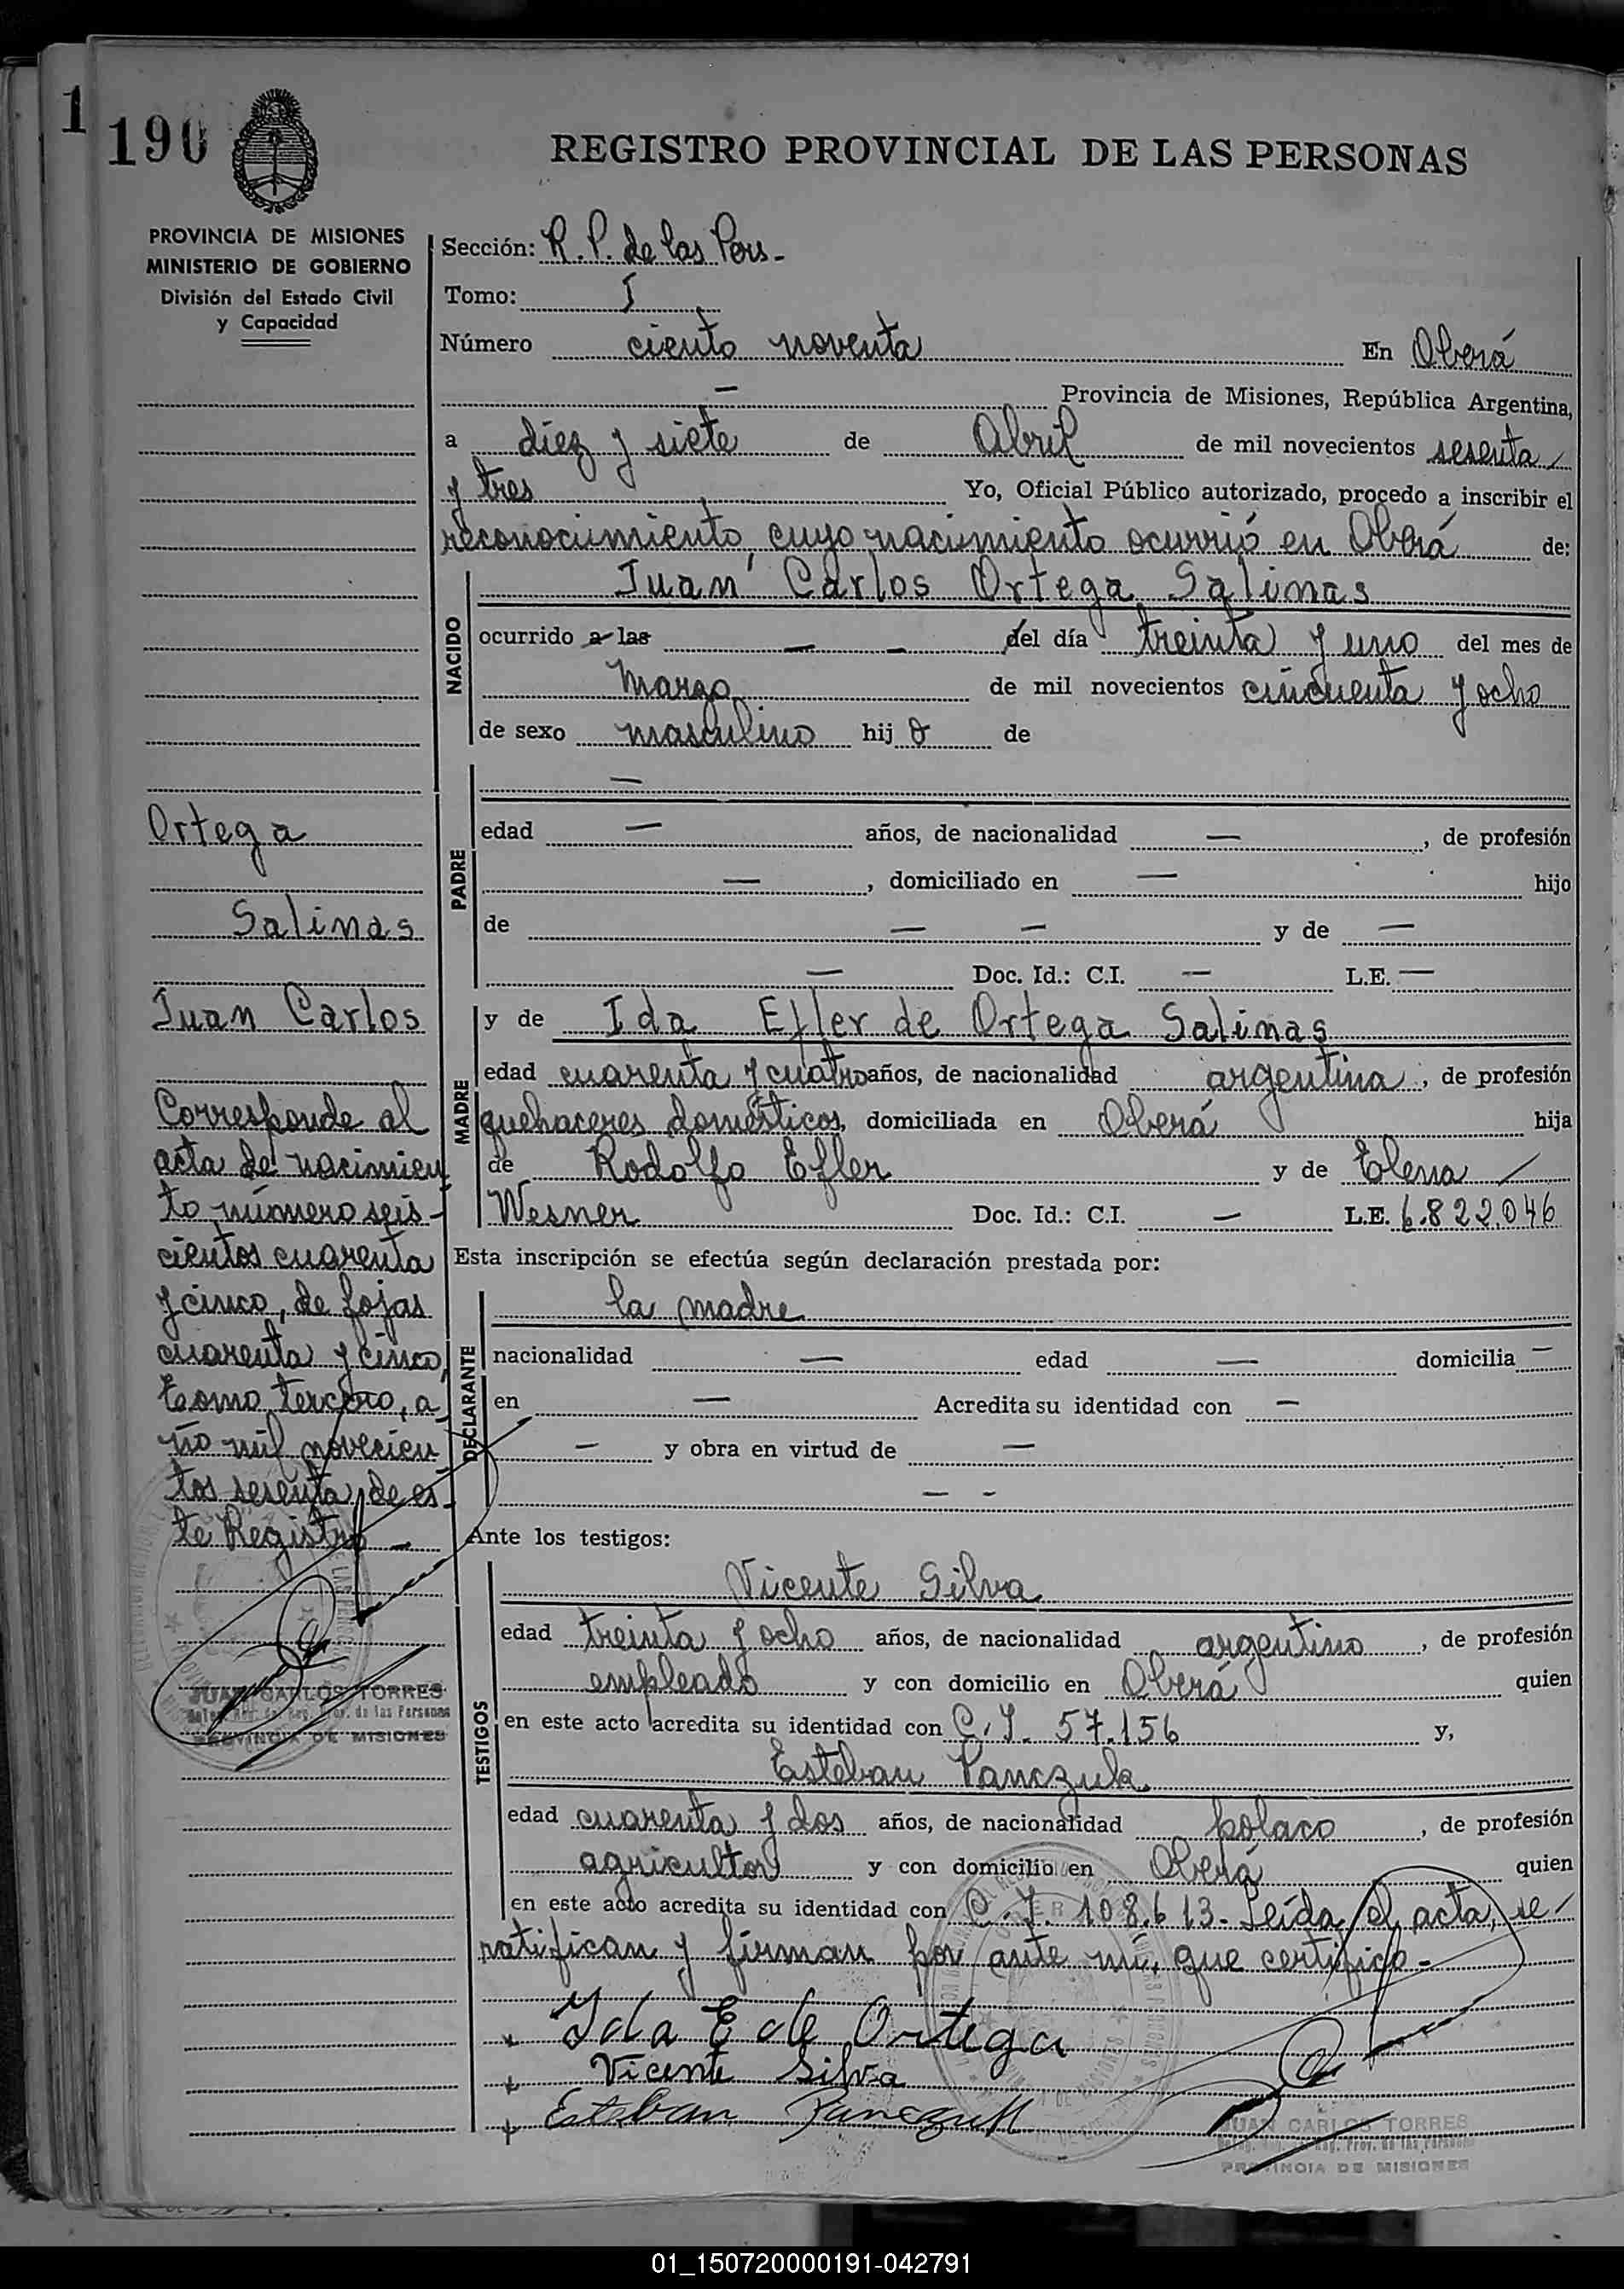 1
190
REGISTRO PROVINCIAL DE LAS PERSONAS
PROVINCIA DE MISIONES
MINISTERIO DE GOBIERNO
División del Estado Civil
y Capacidad
Ortega
Salinas
Juan Carlos
Corresponde al
acta de nacimien
to número seis-
cientos cuarenta
y cinco, de fojas
cuarenta y cinco,
tomo tercero, a
ño mil novecien
tos sesenta, de es-
te Registro -
JUAN CARLOS TORRES
PROVINCIA DE MISIONES
Sección: R. P. de las Pers-
Tomo: I
Número ciento noventa En Oberá
— Provincia de Misiones, República Argentina,
a diez y siete de Abril de mil novecientos sesenta
y tres Yo, Oficial Público autorizado, procedo a inscribir el
reconocimiento, cuyo nacimiento ocurrió en Oberá de:
NACIDO
Juan Carlos Ortega Salinas
ocurrido a las — — del día treinta y uno del mes de
Marzo de mil novecientos cincuenta y ocho
de sexo masculino hij o de
PADRE
—
edad — años, de nacionalidad —, de profesión
—, domiciliado en — hijo
de — — y de —
— Doc. Id.: C.I. — L.E. —
MADRE
y de Ida Efler de Ortega Salinas
edad cuarenta y cuatro años, de nacionalidad argentina, de profesión
quehaceres domésticos, domiciliada en Oberá hija
de Rodolfo Efler y de Elena
Wesner Doc. Id.: C.I. — L.E. 6.822.046
Esta inscripción se efectúa según declaración prestada por:
DECLARANTE
la madre
nacionalidad — edad — domicilia —
en — Acredita su identidad con —
— y obra en virtud de —
— -
Ante los testigos:
TESTIGOS
Vicente Silva
edad treinta y ocho años, de nacionalidad argentino, de profesión
empleado y con domicilio en Oberá quien
en este acto acredita su identidad con C. I. 57.156 y,
Esteban Panczuk
edad cuarenta y dos años, de nacionalidad polaco, de profesión
agricultor y con domicilio en Oberá quien
en este acto acredita su identidad con C. I. 108.613- Leída el acta, se
ratifican y firman por ante mí, que certifico-
Ida E de Ortega
Vicente Silva
Esteban
JUAN CARLOS TORRES
PROVINCIA DE MISIONES
01_150720000191-042791